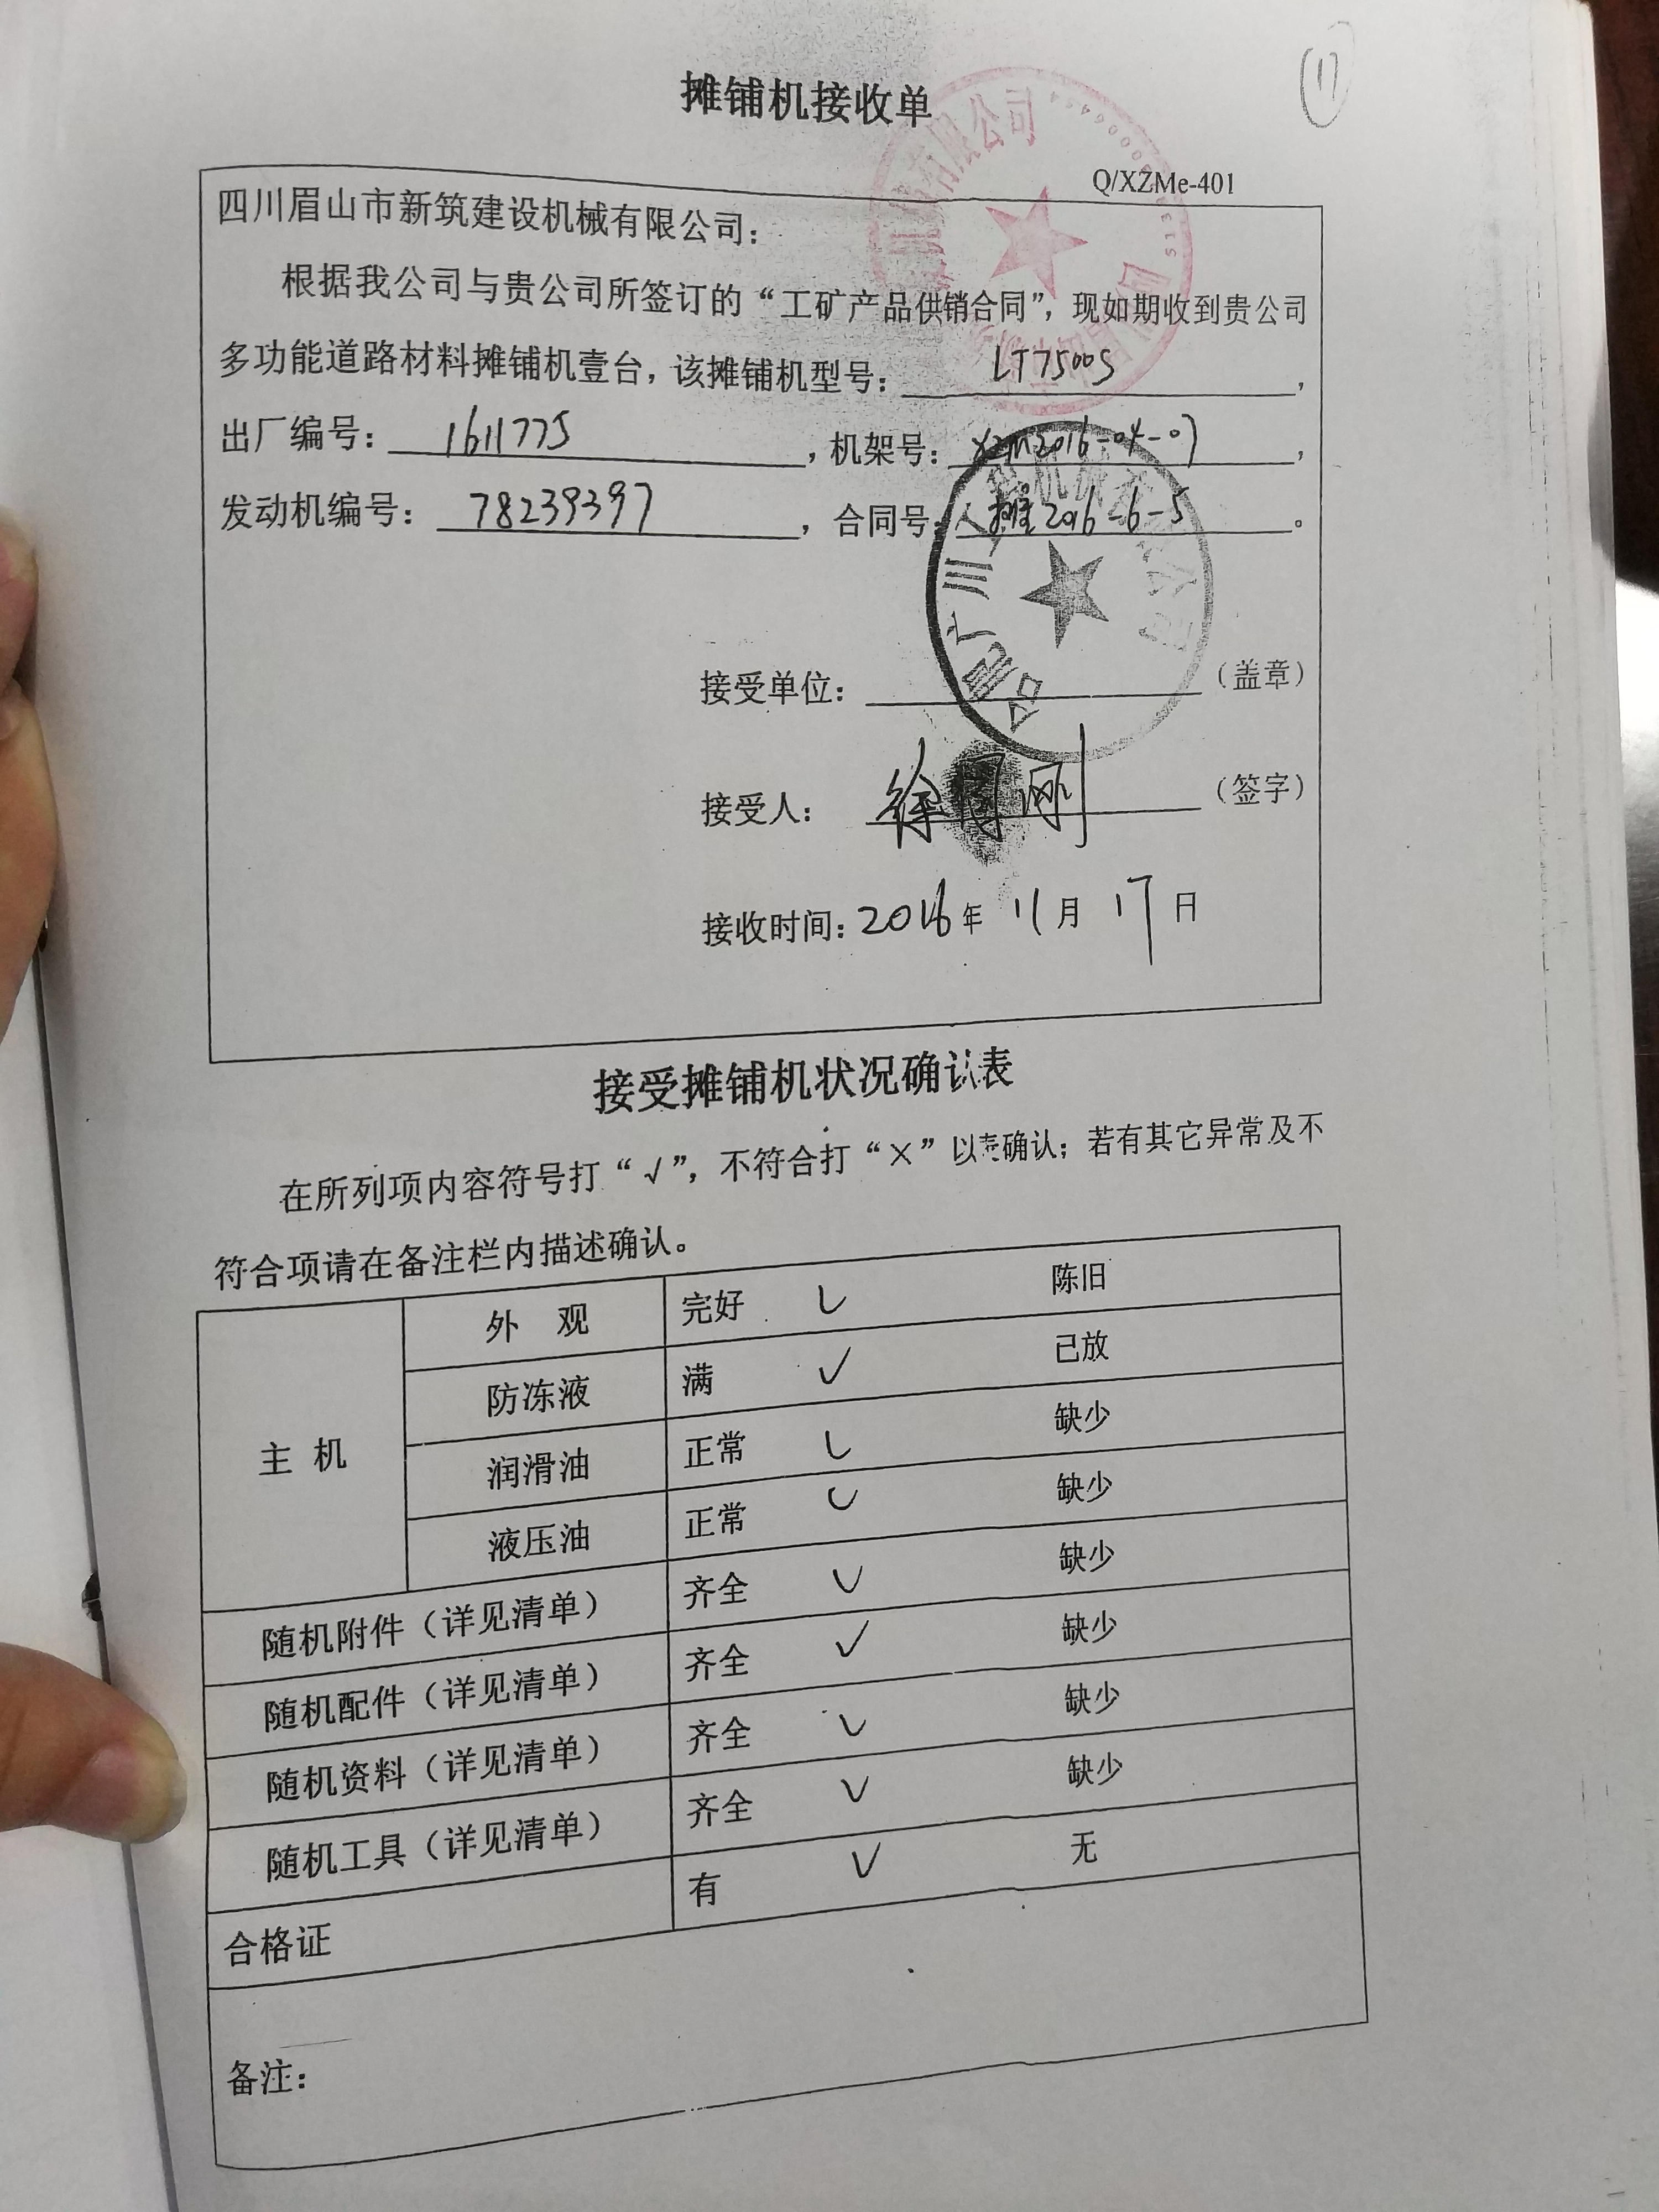 摊铺机接收单
Q/XZMe-401
四川眉山市新筑建设机械有限公司：
根据我公司与贵公司所签订的“工矿产品供销合同”，现如期收到贵公司
多功能道路材料摊铺机壹台，该摊铺机型号： LT7500S ，
出厂编号： 1611775 ，机架号： XZM2016-04-07 ，
发动机编号： 78239397 ，合同号： 2016-6-5 。
接受单位： （盖章）
接受人： 徐 刚 （签字）
接收时间：2016年 11月 17日
接受摊铺机状况确认表
在所列项内容符号打“√”，不符合打“×”以表确认；若有其它异常及不
符合项请在备注栏内描述确认。
主 机
外 观 完好 √ 陈旧
防冻液 满 √ 已放
润滑油 正常 √ 缺少
液压油 正常 √ 缺少
随机附件（详见清单） 齐全 √ 缺少
随机配件（详见清单） 齐全 √ 缺少
随机资料（详见清单） 齐全 √ 缺少
随机工具（详见清单） 齐全 √ 缺少
合格证 有 √ 无
备注：